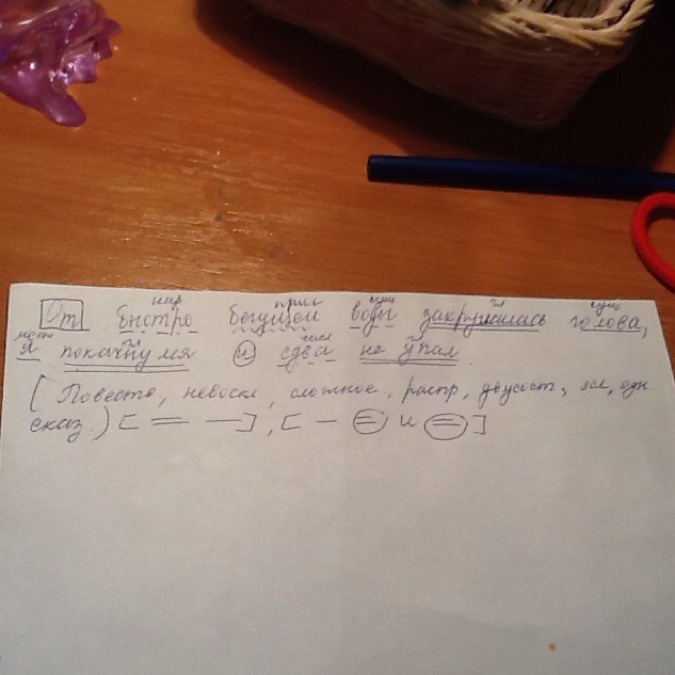 нар прил сущ гл сущ
От быстро бегущей воды закружилась голова,
мест гл числ гл
я покачнулся и едва не упал.
(Повеств, невоскл, сложное, распр, двусост, одн
сказ.) [ = — ], [ — = и = ]